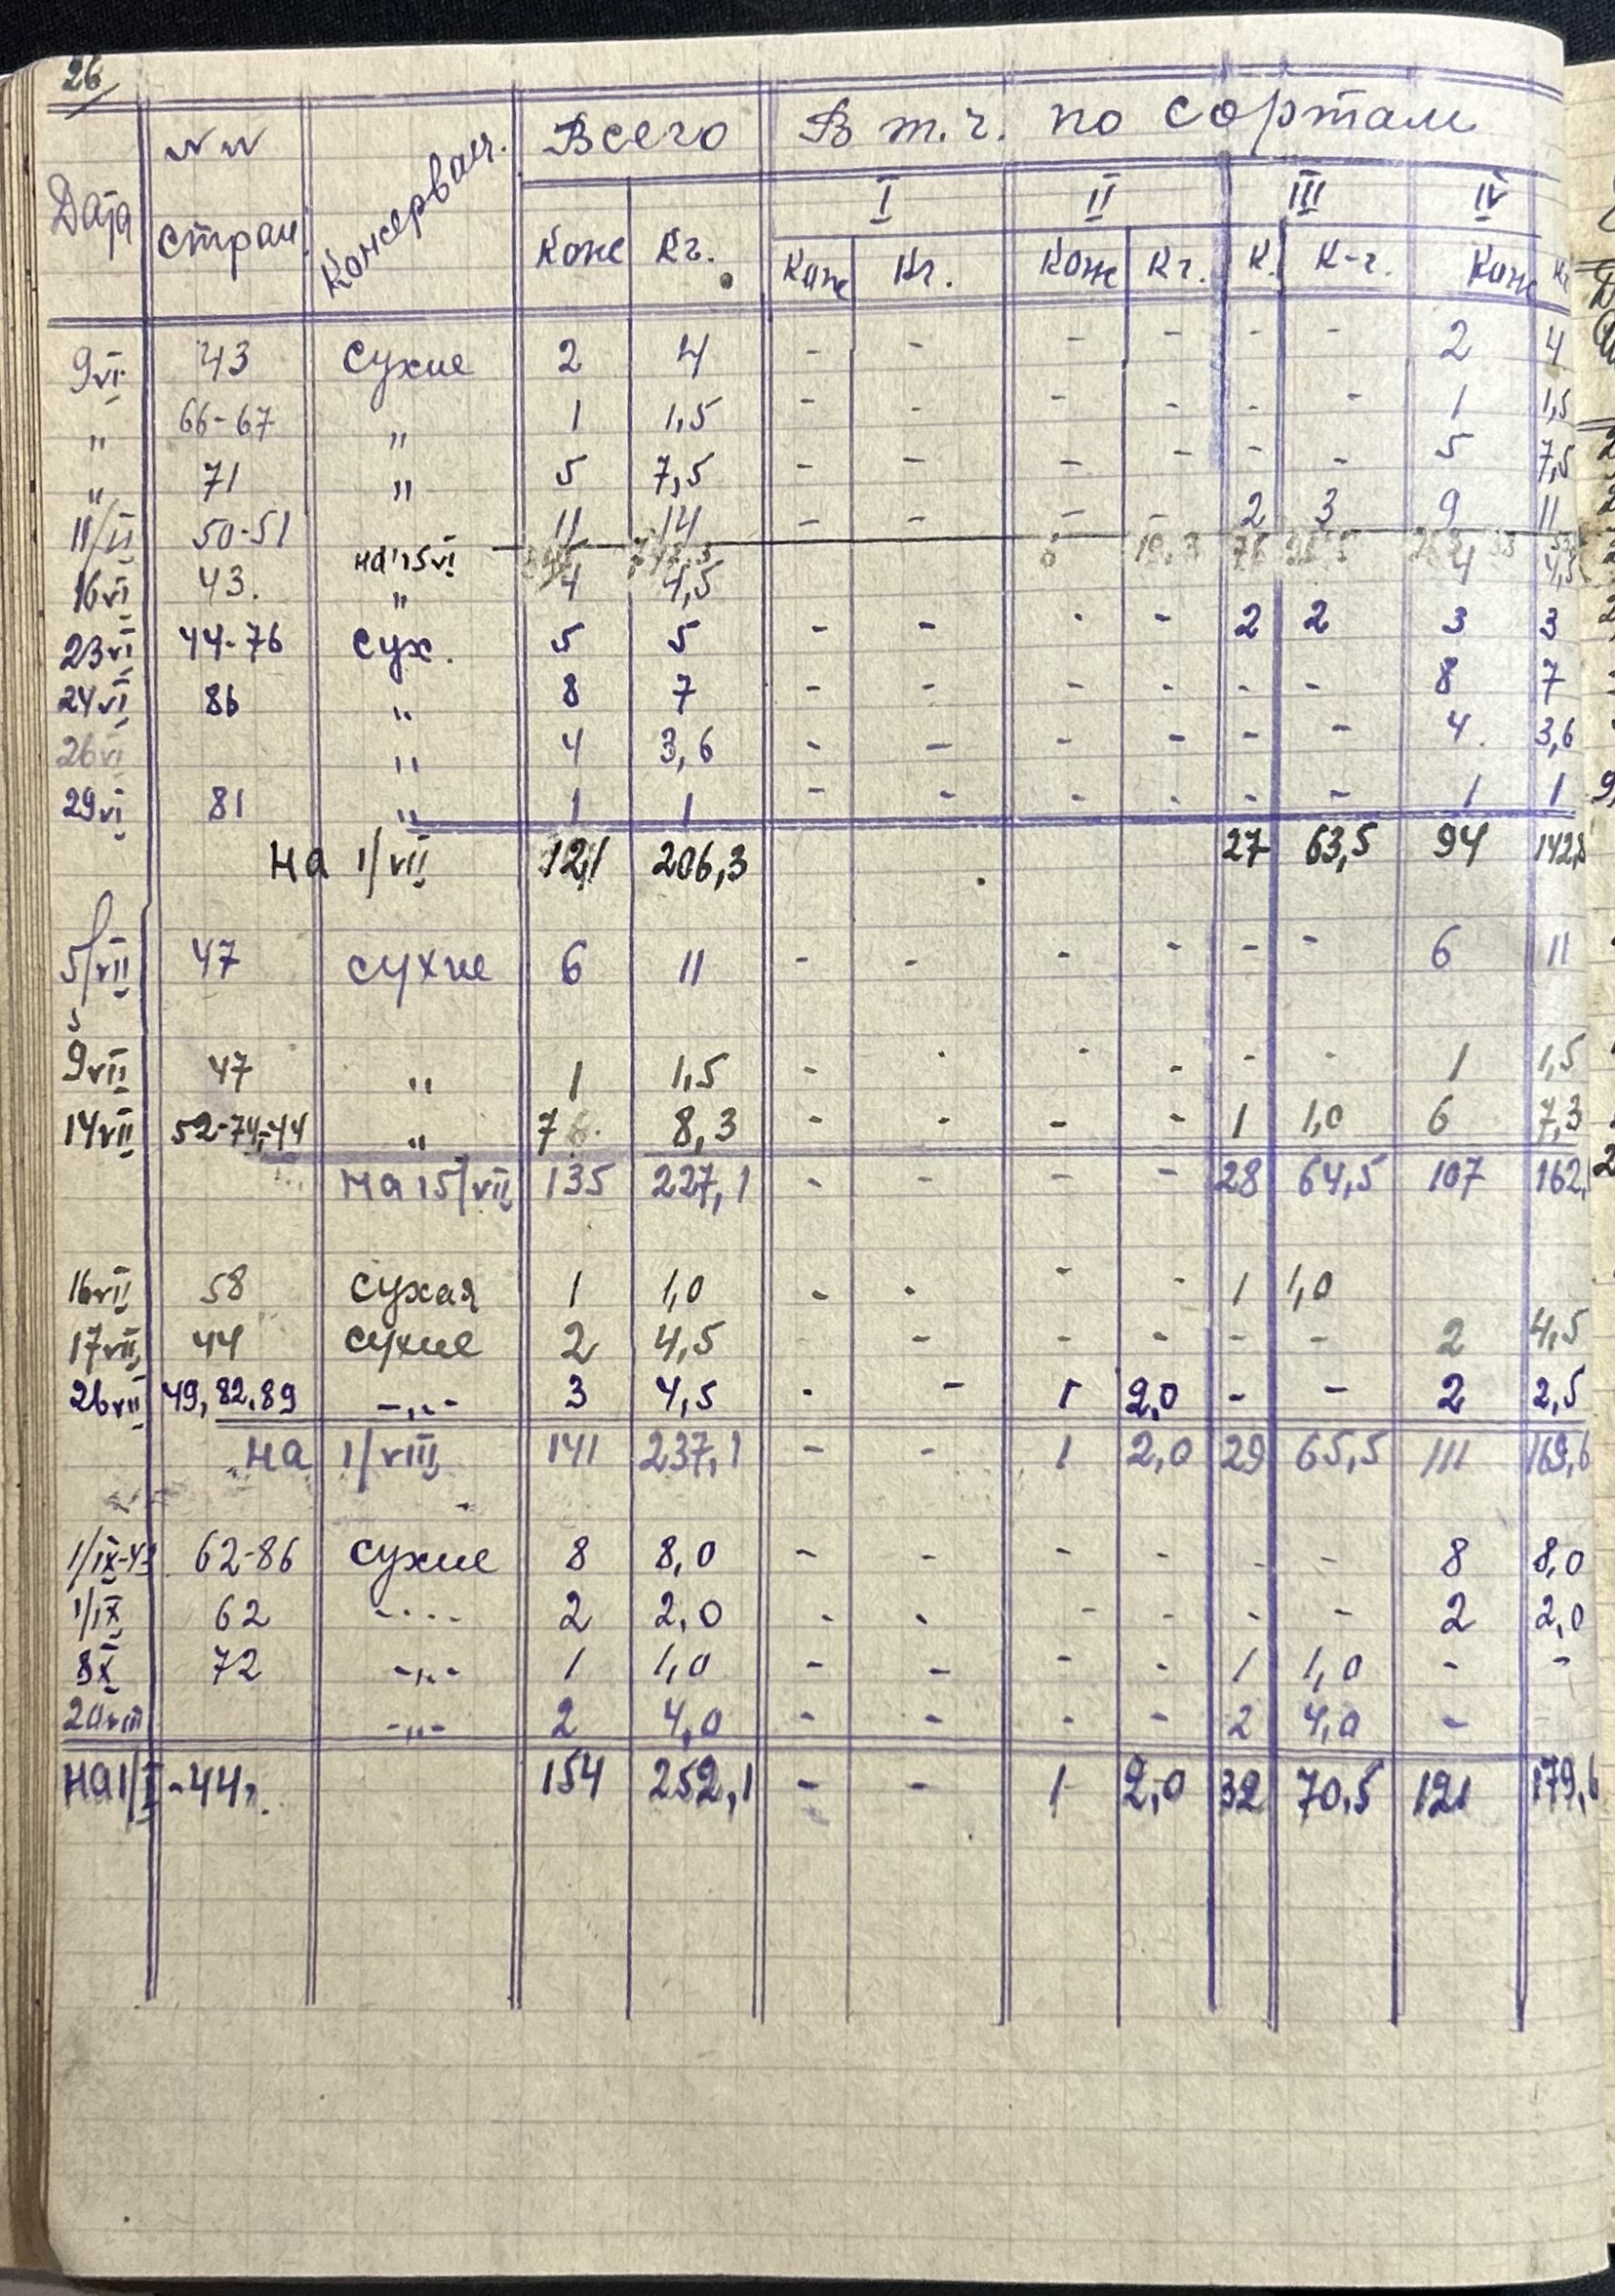 26
Дата №№ стран. Консервац. Всего В т.ч. по сортам
I II III IV
Кож Кг. Кож Кг. Кож Кг. К. К-г. Кож Кг
9 VI 43 Сухие 2 4 - - - - - - 2 4
" 66-67 " 1 1,5 - - - - - - 1 1,5
" 71 " 5 7,5 - - - - - - 5 7,5
11/VI 50-51 11 14 - - - - 2 3 9 11
на 15 VI
16 VI 43. " 4 4,5 4 4,5
23 VI 44-76 Сух. 5 5 - - - - 2 2 3 3
24 VI 86 " 8 7 - - - - - - 8 7
26 VI " 4 3,6 - - - - - - 4 3,6
29 VI 81 " 1 1 - - - - - - 1 1
На 1/VII 121 206,3 27 63,5 94 142,8
5/VII 47 сухие 6 11 - - - - - - 6 11
9 VII 47 " 1 1,5 - - - - - - 1 1,5
14 VII 52-74-44 " 7 8,3 - - - - 1 1,0 6 7,3
На 15/VII 135 227,1 - - - - 28 64,5 107 162,
16 VII 58 сухая 1 1,0 - - - - 1 1,0
17 VII 44 сухие 2 4,5 - - - - - 2 4,5
26 VII 49, 82, 89 -"- 3 4,5 - - 1 2,0 - - 2 2,5
На 1/VIII 141 237,1 - - 1 2,0 29 65,5 111 169,6
1/IX-43 62-86 сухие 8 8,0 - - - - - - 8 8,0
1/IX 62 -"- 2 2,0 - - - - - - 2 2,0
8 X 72 -"- 1 1,0 - - - - 1 1,0 - -
20 VIII -"- 2 4,0 - - - - 2 4,0 -
На 1/I-44г. 154 252,1 - - 1 2,0 32 70,5 121 179,6